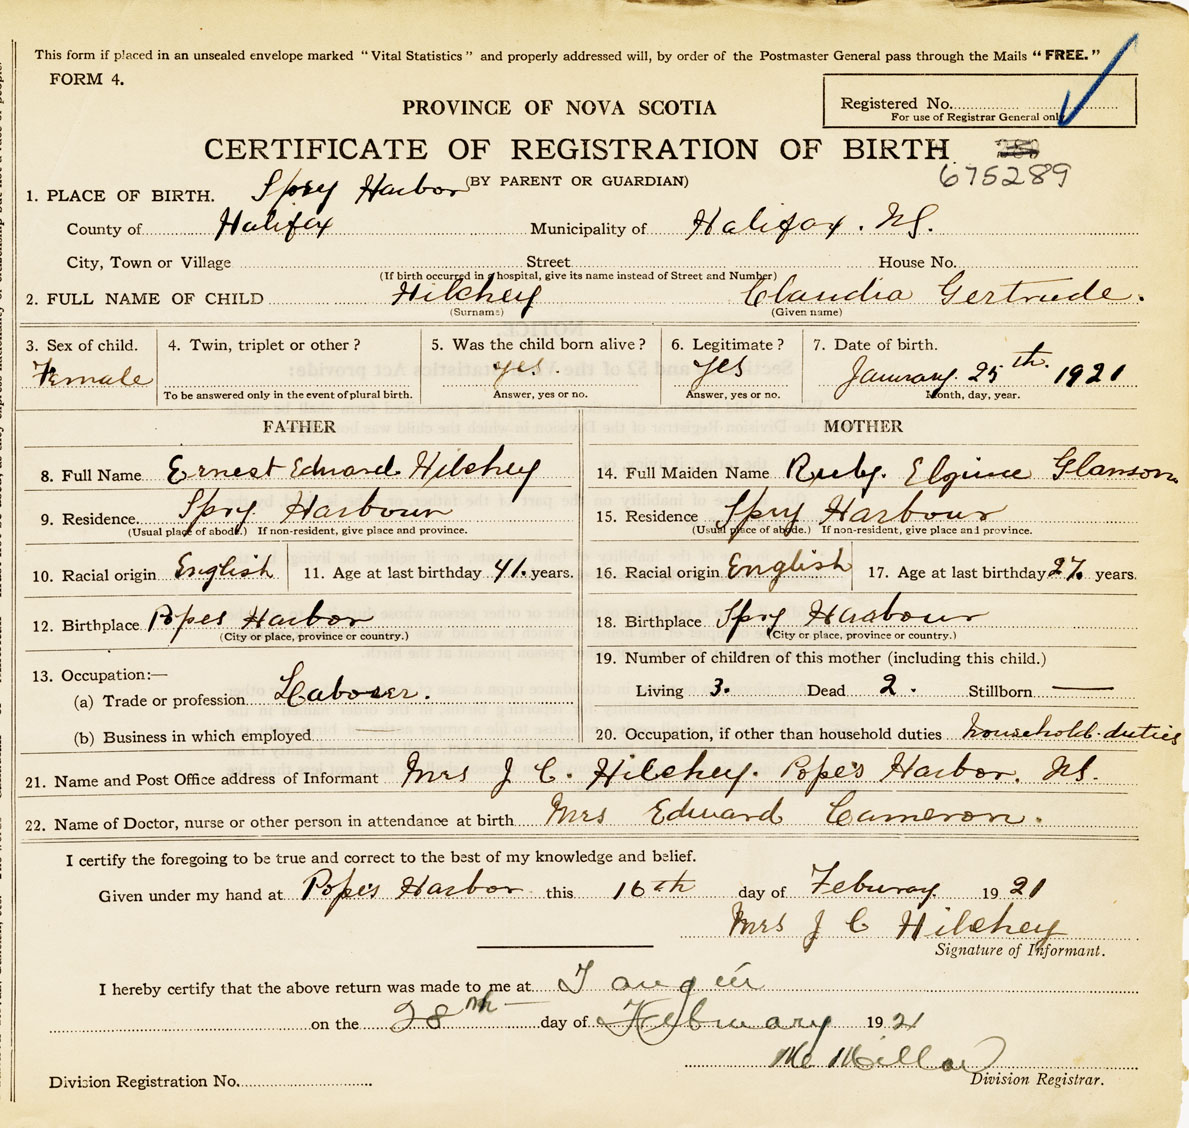 This form if placed in an unsealed envelope marked "Vital Statistics" and properly addressed will, by order of the Postmaster General pass through the Mails "FREE."
FORM 4.
PROVINCE OF NOVA SCOTIA
Registered No.
For use of Registrar General only
CERTIFICATE OF REGISTRATION OF BIRTH
675289
(BY PARENT OR GUARDIAN)
1. PLACE OF BIRTH. Spry Harbor
County of Halifax Municipality of Halifax. NS.
City, Town or Village Street House No.
(If birth occurred in a hospital, give its name instead of Street and Number)
2. FULL NAME OF CHILD Hilchey Claudia Gertrude.
(Surname) (Given name)
3. Sex of child. 4. Twin, triplet or other? 5. Was the child born alive? 6. Legitimate? 7. Date of birth.
Female yes. Yes January. 25th. 1921
To be answered only in the event of plural birth. Answer, yes or no. Answer, yes or no. Month, day, year.
FATHER MOTHER
8. Full Name Ernest Edward Hilchey 14. Full Maiden Name Ruby. Elgine
9. Residence. Spry Harbour 15. Residence Spry Harbour
(Usual place of abode.) If non-resident, give place and province. (Usual place of abode.) If non-resident, give place and province.
10. Racial origin English 11. Age at last birthday 41. years. 16. Racial origin English 17. Age at last birthday 27. years.
12. Birthplace Popes Harbor 18. Birthplace Spry Harabour
(City or place, province or country.) (City or place, province or country.)
13. Occupation:— 19. Number of children of this mother (including this child.)
(a) Trade or profession Laborer. Living 3. Dead 2. Stillborn —
(b) Business in which employed 20. Occupation, if other than household duties household-duties
21. Name and Post Office address of Informant Mrs J C. Hilchey. Pope's Harbor. NS.
22. Name of Doctor, nurse or other person in attendance at birth Mrs Edward Cameron.
I certify the foregoing to be true and correct to the best of my knowledge and belief.
Given under my hand at Pope's Harbor this 16th day of Feburay. 1921
Mrs J C Hilchey
Signature of Informant.
I hereby certify that the above return was made to me at Tangier
on the 28th day of February 1921
Division Registration No. Division Registrar.